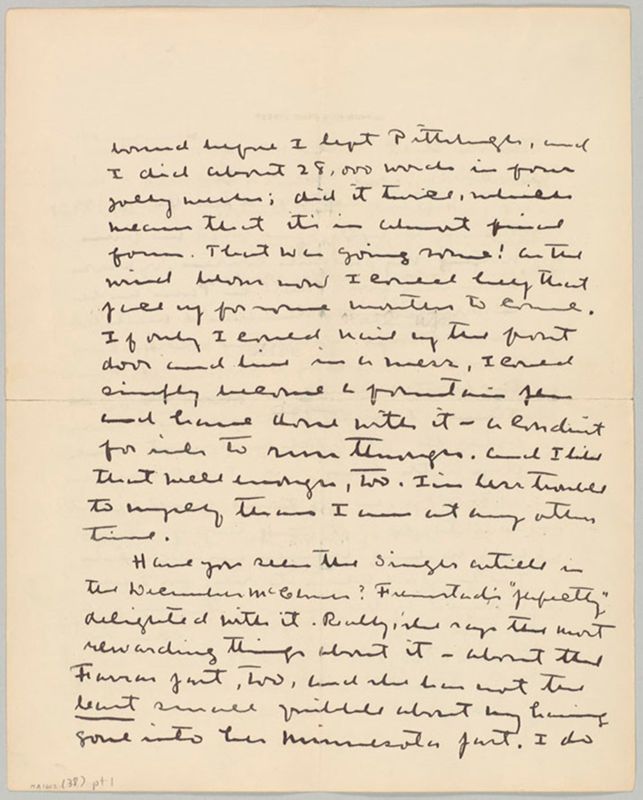 wind before I left Pittsburgh, and
I did about 28,000 words in four
jolly weeks; did it twice, which
means that it's in almost final
form. That was going some! As the
wind blows now I could keep that
pace up for some months to come.
If only I could nail up the front
door and live in a mess, I could
simply become a fountain pen
and have done with it - a conduit
for ink to run through. And I like
that well enough, too. I'm less trouble
to myself than I am at any other
time.
Have you seen the Singer article in
the December McClures? Fremstad is "perfectly"
delighted with it. Really, she says the most
rewarding things about it - about the
Farrar part, too, and she has not the
least small quibble about my having
gone into her Minnesota part. I do
(38) pt. 1